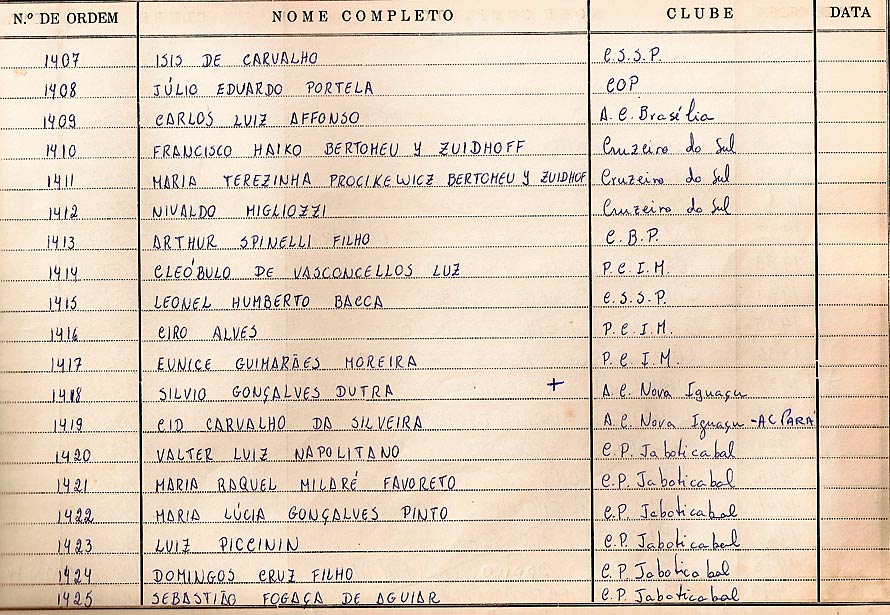 N.º DE ORDEM NOME COMPLETO CLUBE DATA
1407 ISIS DE CARVALHO C.S.S.P.
1408 JÚLIO EDUARDO PORTELA COP
1409 CARLOS LUIZ AFFONSO A.C. Brasília
1410 FRANCISCO HAIKO BERTOMEU Y ZUIDHOFF Cruzeiro do Sul
1411 MARIA TEREZINHA PROCIKEWICZ BERTOMEU Y ZUIDHOF Cruzeiro do Sul
1412 NIVALDO MIGLIOZZI Cruzeiro do Sul
1413 ARTHUR SPINELLI FILHO C.B.P.
1414 CLEÓBULO DE VASCONCELLOS LUZ P.C.I.M.
1415 LEONEL HUMBERTO BACCA C.S.S.P.
1416 CIRO ALVES P.C.I.M.
1417 EUNICE GUIMARÃES MOREIRA P.C.I.M.
1418 SILVIO GONÇALVES DUTRA + A.C. Nova Iguaçu
1419 CID CARVALHO DA SILVEIRA A.C. Nova Iguaçu - AC PARÁ
1420 VALTER LUIZ NAPOLITANO C.P. Jaboticabal
1421 MARIA RAQUEL MILARÉ FAVORETO C.P. Jaboticabal
1422 MARIA LÚCIA GONÇALVES PINTO C.P. Jaboticabal
1423 LUIZ PICCININ C.P. Jaboticabal
1424 DOMINGOS CRUZ FILHO C.P. Jaboticabal
1425 SEBASTIÃO FOGAÇA DE AGUIAR C.P. Jaboticabal